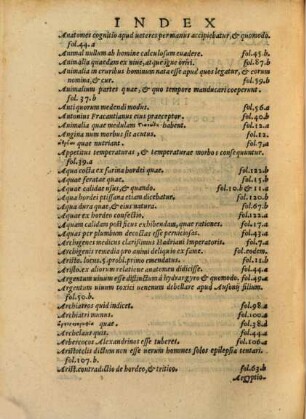 INDEX
Anatomes cognitio apud ueteres per manus accipiebatur, & quomodo.
fol.44.a
Animal nullum ab homine calculosum euadere. fol.43.b.
Animalia quædam ex niue, atque igne oriri. fol.87.b
Animalia in cruribus hominum nata esse apud quos legatur, & eorum
nomina, & cur. fol.59.b
Animalium partes quæ, & quo tempore manducari coeperunt
fol.37.b
Anti quorum medendi modus. fol.56.a
Antonius Fracantianus eius præceptor fol.40.b
Animalia quæ medulam habent. fol.12.a
Angina num morbus sit acutus. fol.12.a
quæ nutriant. fol.7.a
Appetitus temperaturas, & temperaturæ morbos consequuntur.
fol.39.a
Aqua cocta ex farina hordei quæ. fol.2.b
Aquæ feratæ quæ. fol.2.b
Aquæ calidæ usus, & quando. fol.10.b & 11.a
Aqua hordei ptisana etiam dicebatur. fol.12.b
Aqua dura quæ, & eius natura. fol.67.b
Aquæ ex hordeo confectio. fol.22.b
Aquam calidam post ficus exhibendam, quæ rationes. fol.17.a
Aquas per plumbum decursas esse perniciosas. fol.21.b
Archigenes medicus clarissimus Hadriani imperatoris. fol.7.a
Archigenis remedia pro animi deliquio ex fame. fol.eodem.
Aristo. locus.5.probl.primo emendatus. fol.11.b
Aristo. ex aliorum relatione anatomen didicisse. fol.44.a
Argentum uiuum esse dissimile ab hydrargyro & quomodo. fol.49.a
Argentum uiuum toxici uenenum debellare apud Ausonij filium.
fol.50.b.
Archiatros quid indicet. fol.98.a
Archiatri munus. fol.101.b
quæ. fol.44.a
Archelaus quis. fol.100.a
Arbericocos Alexandrinos esse tuberes. fol.106.a
Aristotelis dictum non esse uerum homines solos epilepsia tentari.
fol.107.b.
Arist. contradictio de hordeo, & tritico. fol.63.b
Aegyptia